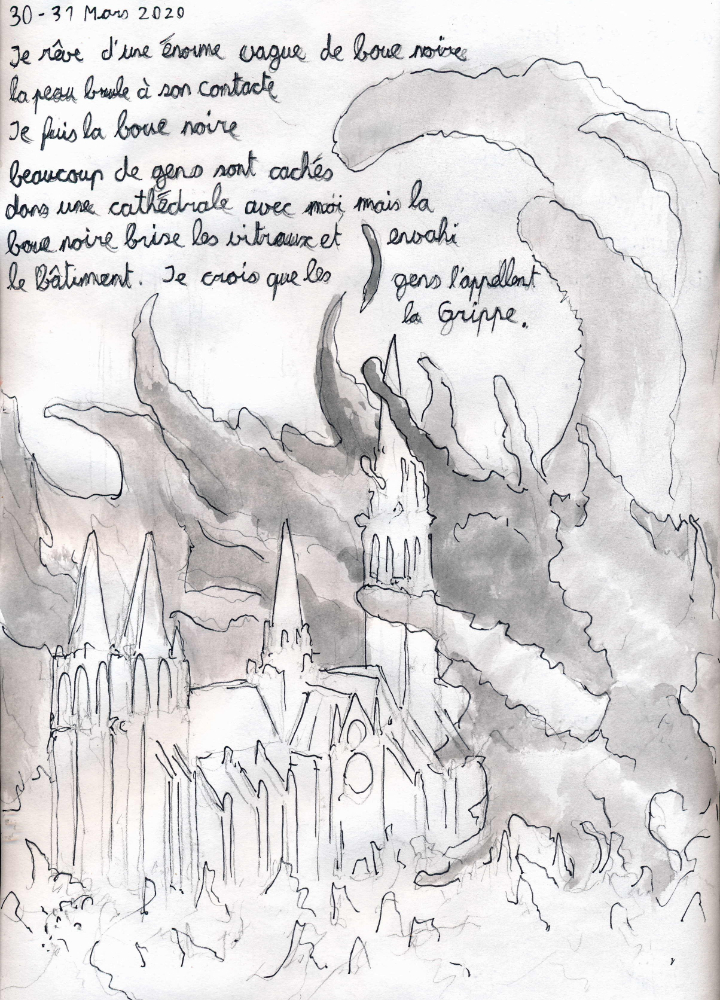 30-31 Mars 2020
Je rêve d'une énorme vague de boue noire
la peau brule à son contacte
Je fuis la boue noire
beaucoup de gens sont cachés
dans une cathédrale avec moi mais la
boue noire brise les vitraux et envahi
le bâtiment. Je crois que les gens l'appellent
la Grippe.